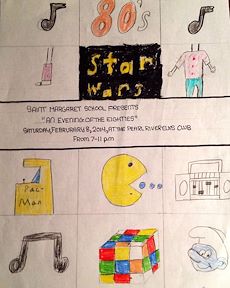 80's
Star
Wars
SAINT MARGARET SCHOOL PRESENTS
"AN EVENING OF THE EIGHTIES"
SATURDAY, FEBRUARY 8, 2014, AT THE PEARL RIVER ELKS CLUB
FROM 7-11 pm
PAC-
MAN